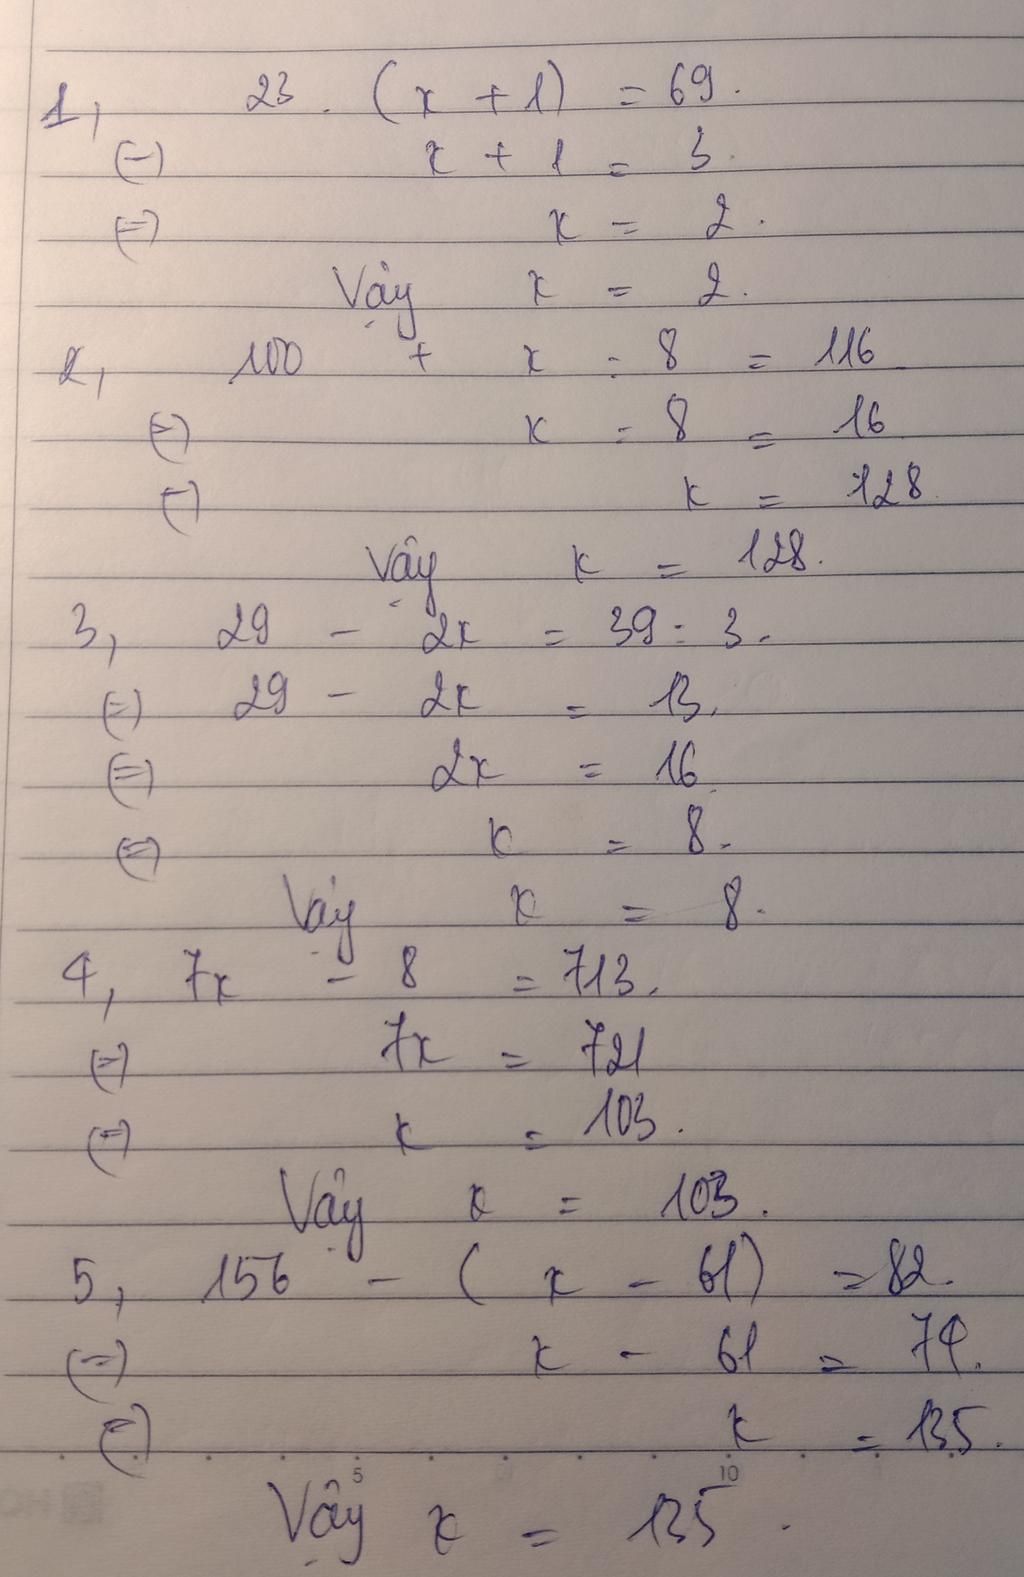 1, 23 . (x + 1) = 69.
(=) x + 1 = 3.
(=) x = 2.
Vậy x = 2.
2, 100 + x : 8 = 116
(=) x : 8 = 16
(=) x = 128.
Vậy x = 128.
3, 29 - 2x = 39 : 3.
(=) 29 - 2x = 13.
(=) 2x = 16.
(=) x = 8.
Vậy x = 8.
4, 7x - 8 = 713.
(=) 7x = 721
(=) x = 103.
Vậy x = 103.
5, 156 - (x - 61) = 82.
(=) x - 61 = 74.
(=) x = 135.
5 10
Vậy x = 135.